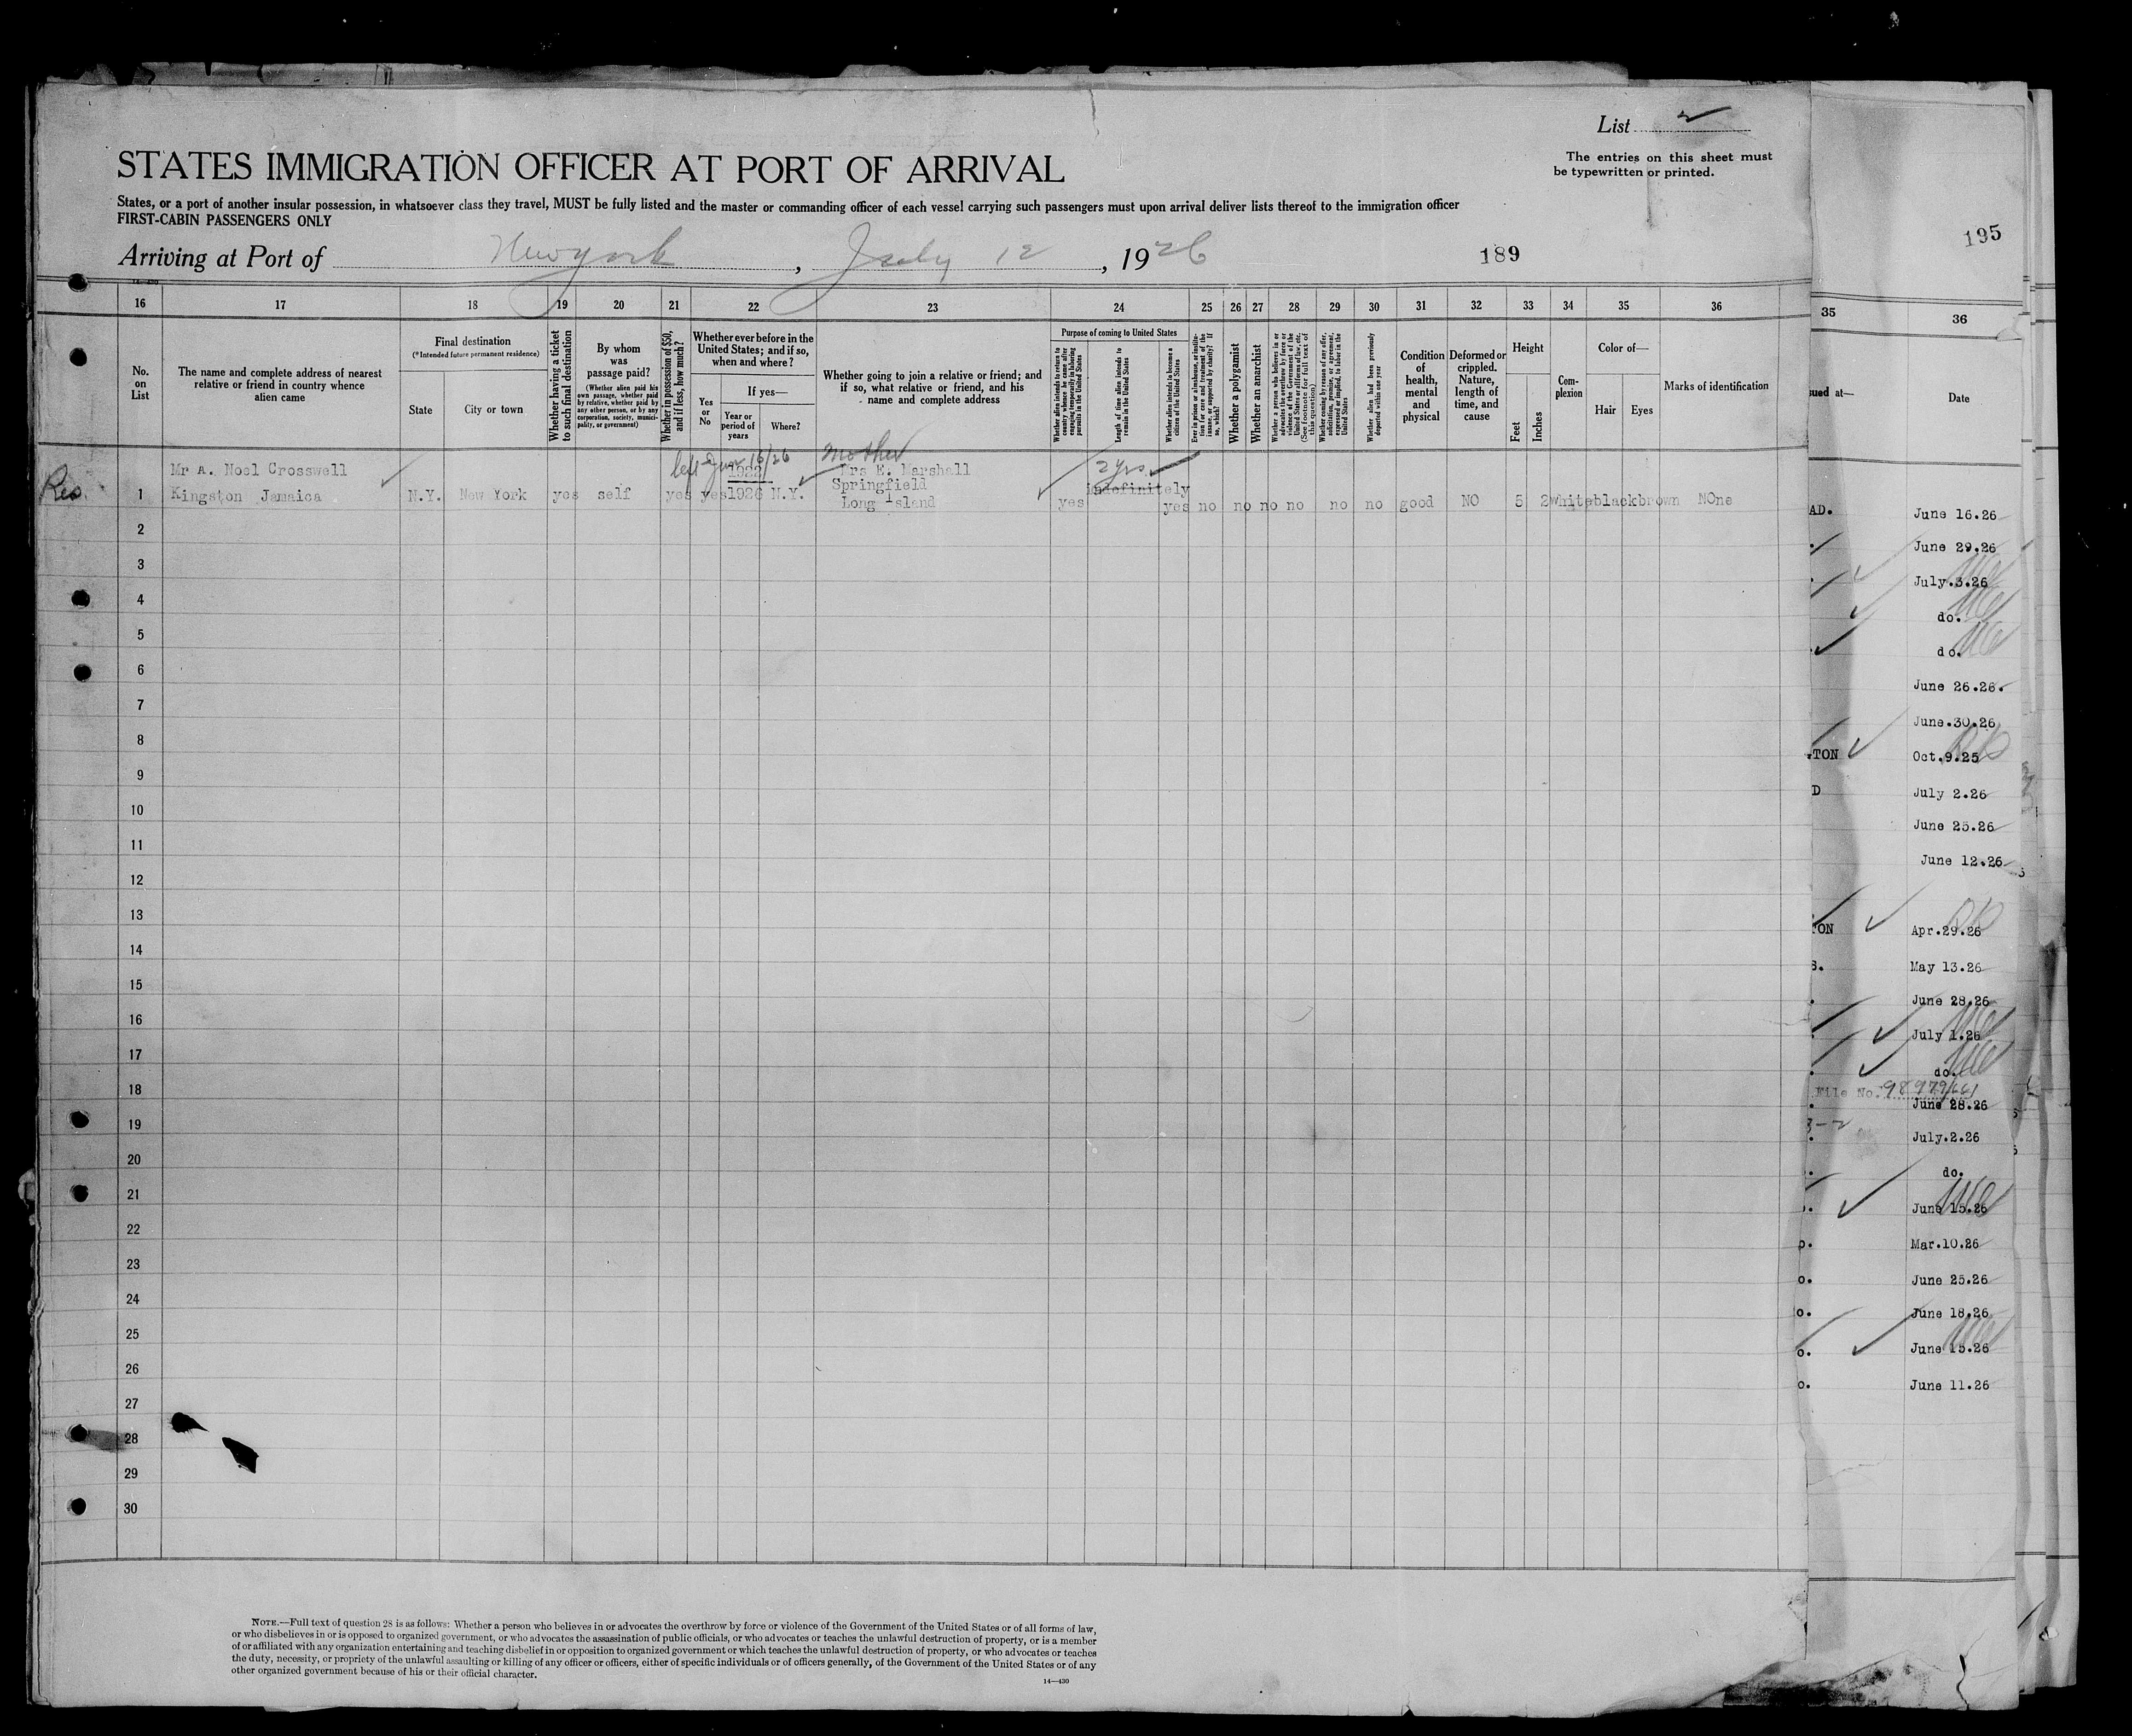 List 2
The entries on this sheet must
be typewritten or printed.
STATES IMMIGRATION OFFICER AT PORT OF ARRIVAL
States, or a port of another insular possession, in whatsoever class they travel, MUST be fully listed and the master or commanding officer of each vessel carrying such passengers must upon arrival deliver lists thereof to the immigration officer
FIRST-CABIN PASSENGERS ONLY
Arriving at Port of New york, July 12, 1926
189
195
16 17 18 19 20 21 22 23 24 25 26 27 28 29 30 31 32 33 34 35 36
35 36
No.
on
List
The name and complete address of nearest
relative or friend in country whence
alien came
Final destination
(*Intended future permanent residence)
State
City or town
Whether having a ticket
to such final destination
By whom
was
passage paid?
(Whether alien paid his
own passage, whether paid
by relative, whether paid by
any other person, or by any
corporation, society, munici-
pality, or government)
Whether in possession of $50,
and if less, how much?
Whether ever before in the
United States; and if so,
when and where?
Yes
or
No
If yes—
Year or
period of
years
Where?
Whether going to join a relative or friend; and
if so, what relative or friend, and his
name and complete address
Purpose of coming to United States
Whether alien intends to return to
country whence he came after
engaging temporarily in laboring
pursuits in the United States
Length of time alien intends to
remain in the United States
Whether alien intends to become a
citizen of the United States
Ever in prison or almshouse, or institu-
tion for care and treatment of the
insane, or supported by charity? If
so, which?
Whether a polygamist
Whether an anarchist
Whether a person who believes in or
advocates the overthrow by force or
violence of the Government of the
United States or all forms of law, etc.
(See footnote for full text of
this question)
Whether coming by reason of any offer,
solicitation, promise, or agreement,
expressed or implied, to labor in the
United States
Whether alien had been previously
deported within one year
Condition
of
health,
mental
and
physical
Deformed or
crippled.
Nature,
length of
time, and
cause
Height
Feet
Inches
Com-
plexion
Color of—
Hair
Eyes
Marks of identification
sued at—
Date
left June 16/26
Mother
Mr A. Noel Crosswell
1922
Mrs E. Marshall
2 yrs
Springfield
indefinitely
Rec.
1 Kingston Jamaica N.Y. New York yes self yes yes 1926 N.Y. Long Island yes yes no no no no no no good NO 5 2 White black brown NOne
2
3
4
5
6
7
8
9
10
11
12
13
14
15
16
17
18
19
20
21
22
23
24
25
26
27
28
29
30
AD. June 16.26
June 29.26
July.3.26
do.
do.
June 26.26.
June.30.26
TON Oct.9.25
D July 2.26
June 25.26
June 12.26
TON Apr.29.26
S. May 13.26
June 28.26
July 1.26
do.
File No. 98979/661
June 28.26
July.2.26
do.
June 15.26
o. Mar.10.26
o. June 25.26
o. June 18.26
o. June 15.26
o. June 11.26
NOTE.—Full text of question 28 is as follows: Whether a person who believes in or advocates the overthrow by force or violence of the Government of the United States or of all forms of law,
or who disbelieves in or is opposed to organized government, or who advocates the assassination of public officials, or who advocates or teaches the unlawful destruction of property, or is a member
of or affiliated with any organization entertaining and teaching disbelief in or opposition to organized government or which teaches the unlawful destruction of property, or who advocates or teaches
the duty, necessity, or propriety of the unlawful assaulting or killing of any officer or officers, either of specific individuals or of officers generally, of the Government of the United States or of any
other organized government because of his or their official character.
14—430